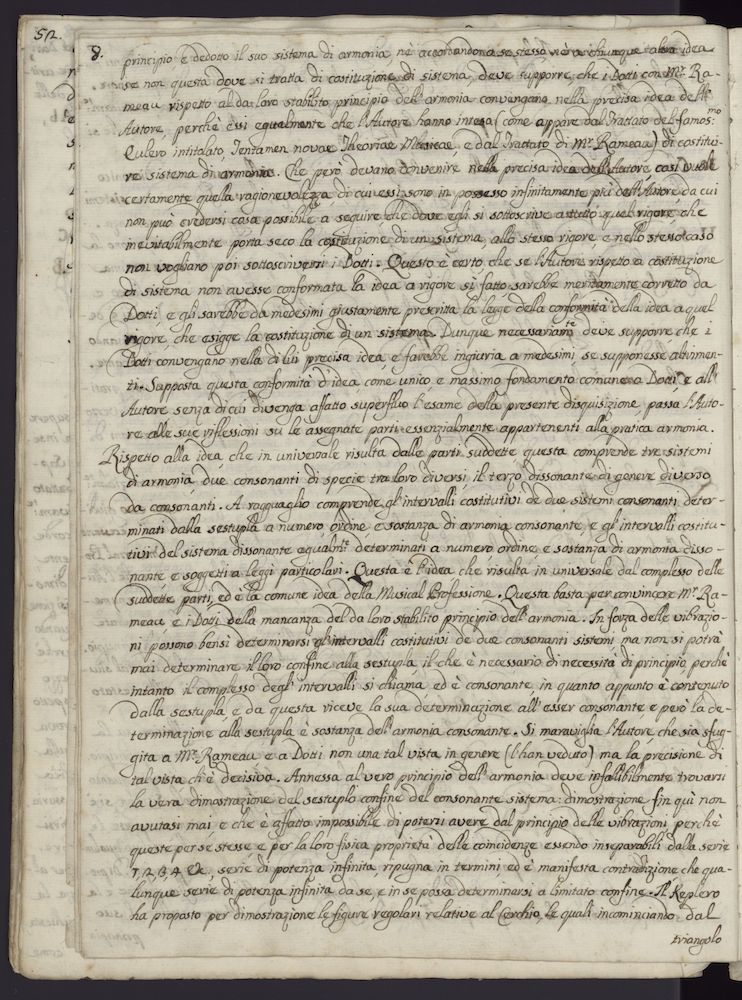 512.
8.
principio è dedotto il suo sistema di armonia, nè accordandone a se stesso, nè a chiunque altra idea
se non questa dove si tratta di costituzione di sistema, deve supporre, che i Dotti con Mr. Ra-
meau rispetto al da loro stabilito principio dell'armonia convengano nella precisa idea dell'
Autore, perchè essi egualmente che l'Autore hanno intesa (come appare dal Trattato del famos.mo
Eulero intitolato Tentamen novae Theoriae Musicae, e dal Trattato di Mr. Rameau) di costitui-
re sistema di armonia. Che però devano convenire nella precisa idea dell'Autore, così vuole
certamente quella ragionevolezza di cui essi sono in possesso infinitamente più dell'Autore, da cui
non può credersi cosa possibile a seguire, che dove egli si sottoscrive a tutto quel rigore, che
inevitabilmente porta seco la costituzione di un sistema, allo stesso rigore, e nello stesso caso
non vogliano poi sottoscriversi i Dotti. Questo è certo, che se l'Autore rispetto a costituzione
di sistema non avesse conformata la idea a rigore sì fatto sarebbe meritamente corretto da
Dotti, e gli sarebbe da medesimi giustamente prescritta la legge della conformità della idea a quel
rigore, che esige la costituzione di un sistema. Dunque necessariam.te deve supporre che i
Dotti convengano nella di lui precisa idea, e farebbe ingiuria a medesimi se supponesse altrimen-
ti. Supposta questa conformità d'idea come unico e massimo fondamento comune a Dotti e all'
Autore senza di cui divenga affatto superfluo l'esame della presente disquisizione, passa l'Auto-
re alle sue riflessioni su le assegnate parti essenzialmente appartenenti alla pratica armonia.
Rispetto alla idea, che in universale risulta dalle parti suddette questa comprende tre sistemi
di armonia, due consonanti di specie tra loro diversi, il terzo dissonante di genere diverso
da consonanti. A ragguaglio comprende gl'intervalli costitutivi de due sistemi consonanti deter-
minati dalla sestupla a numero, ordine e sostanza di armonia consonante, e gl'intervalli costitu-
tivi del sistema dissonante egualm.te determinati a numero ordine e sostanza di armonia disso-
nante e soggetti a leggi particolari. Questa è l'idea che risulta in universale dal complesso delle
suddette parti, ed è la comune idea della Musical Professione. Questa basta per convincere Mr. Ra-
meau e i Dotti della mancanza del da loro stabilito principio dell'armonia. In forza delle vibrazio-
ni possono bensì determinarsi gl'intervalli costitutivi de due consonanti sistemi ma non si potrà
mai determinare il loro confine alla sestupla, il che è necessario di necessità di principio, perchè
intanto il complesso degl'intervalli si chiama, ed è consonante, in quanto appunto è contenuto
dalla sestupla, e da questa riceve la sua determinazione all'esser consonante, e però la de-
terminazione alla sestupla è sostanza dell'armonia consonante. Si maraviglia l'Autore, che sia sfug-
gita a Mr. Rameau e a Dotti non una tal vista in genere (l'han veduto) ma la precisione di
tal vista ch'è decisiva. Annessa al vero principio dell'armonia deve infallibilmente trovarsi
la vera dimostrazione del sestuplo confine del consonante sistema: dimostrazione fin qui non
avutasi mai, e che è affatto impossibile di potersi avere dal principio delle vibrazioni, perchè
queste per se stesse e per la loro fisica proprietà delle coincidenze essendo inseparabili dalla serie
1, 2, 3, 4 &c, serie di potenza infinita, ripugna in termini ed è manifesta contradizione, che qua-
lunque serie di potenza infinita da se, e in se possa determinarsi a limitato confine. Il Keplero
ha proposto per dimostrazione le figure regolari relative al Cerchio, le quali incominciando dal
triangolo